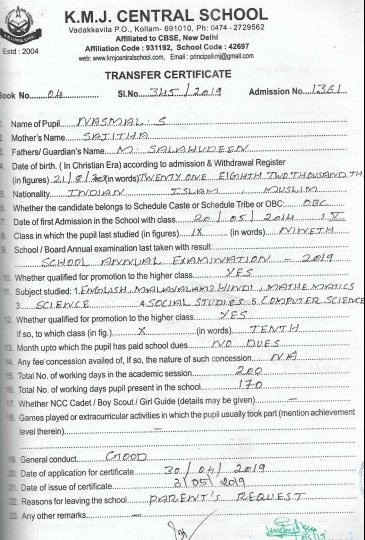 K.M.J. CENTRAL SCHOOL
Vadakkevila P.O., Kollam- 691010, Ph: 0474 - 2729562
Affiliated to CBSE, New Delhi
Affiliation Code : 931192, School Code : 42697
web: www.kmjcentralschool.com, Email : principalkmj@gmail.com
Estd : 2004
TRANSFER CERTIFICATE
Book No. 04 Sl.No. 345/2019 Admission No. 1361
1. Name of Pupil NASMAL. S
2. Mother's Name SAJITHA
3. Fathers/ Guardian's Name M. SALAHUDEEN
4. Date of birth. ( In Christian Era) according to admission & Withdrawal Register
(in figures) 21/8/ (in words) TWENTY ONE EIGHTH TWO THOUSAND
5. Nationality INDIAN ISLAM, MUSLIM
6. Whether the candidate belongs to Schedule Caste or Schedule Tribe or OBC: OBC
7. Date of first Admission in the School with class. 20/05/2014 V
8. Class in which the pupil studied (in figures) IX (in words) NINETH
9. School / Board Annual examination last taken with result
SCHOOL ANNUAL EXAMINATION - 2019
10. Whether qualified for promotion to the higher class. YES
11. Subject studied: 1. ENGLISH, MALAYALAM 2. HINDI, MATHEMATICS
3. SCIENCE 4. SOCIAL STUDIES 5. COMPUTER SCIENCE
12. Whether qualified for promotion to the higher class YES
If so, to which class (in fig.) X (in words) TENTH
13. Month upto which the pupil has paid school dues NO DUES
14. Any fee concession availed of, If so, the nature of such concession NA
15. Total No. of working days in the academic session 200
16. Total No. of working days pupil present in the school 170
17. Whether NCC Cadet / Boy Scout / Girl Guide (details may be given) -
18. Games played or extracurricular activities in which the pupil usually took part (mention achievement
level therein) -
19. General conduct GOOD
20. Date of application for certificate 30/04/2019
21. Date of issue of certificate 3/05/2019
22. Reasons for leaving the school PARENT'S REQUEST
23. Any other remarks -